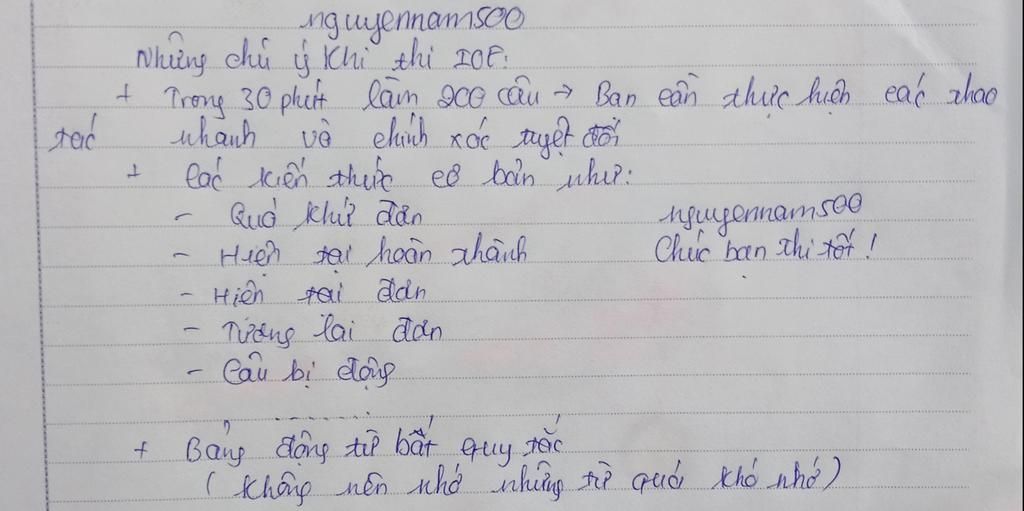 nguyennam500
Những chú ý khi thi IOE:
+ Trong 30 phút làm 200 câu → Bạn cần thực hiện các thao
tác nhanh và chính xác tuyệt đối
+ Các kiến thức cơ bản như:
- Quá khứ đơn
nguyennam500
- Hiện tại hoàn thành
Chúc bạn thi tốt!
- Hiện tại đơn
- Tương lai đơn
- Câu bị động
..............
+ Bảng động từ bất quy tắc
(không nên nhớ những từ quá khó nhớ)